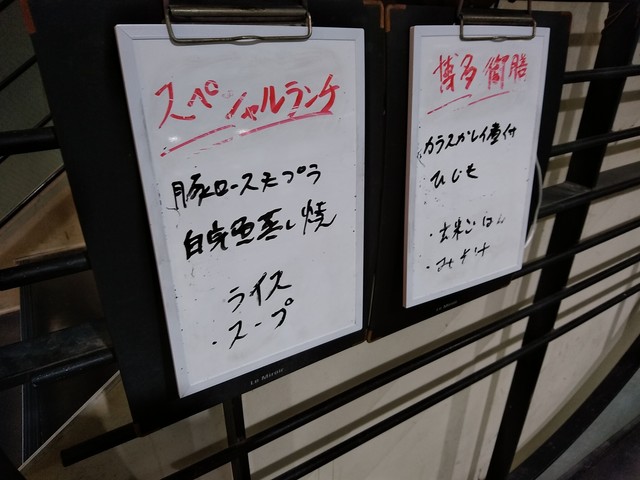 スペシャルランチ
豚ロース天プラ
白身魚蒸し焼
ライス
・スープ
Le Mieux
博多 御膳
カラスガレイ煮付
ひじき
・玄米ごはん
・みそ汁